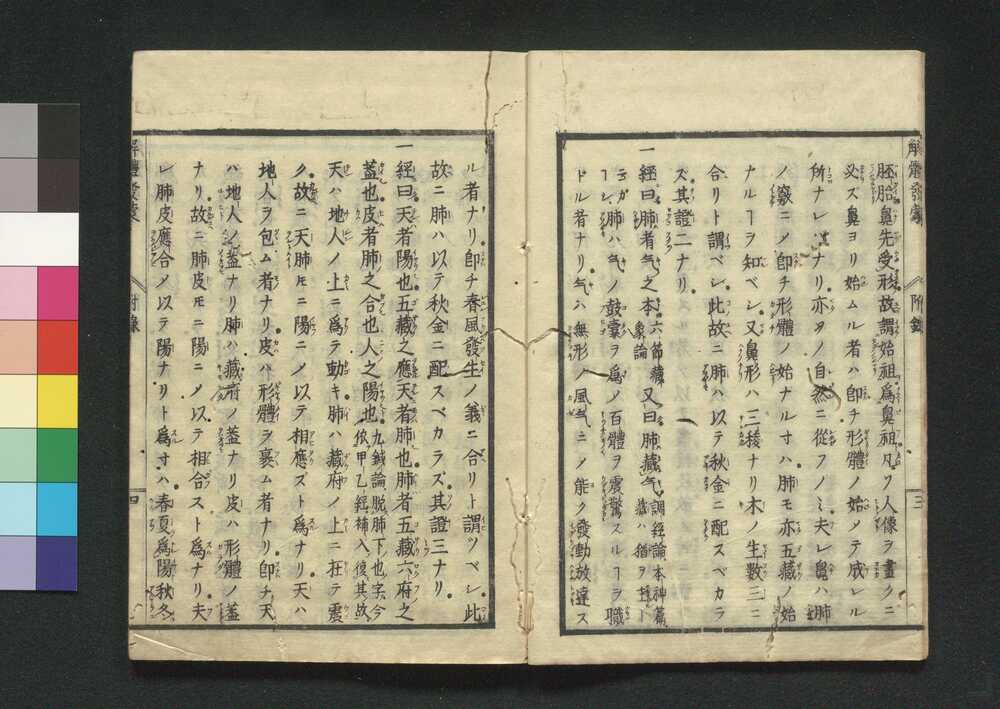 胚胎鼻先受形故謂始祖爲鼻祖凡ソ人像ヲ畫クニ
必ズ鼻ヨリ始ムル者ハ卽チ形體ノ始メテ成レル
所ナレハナリ亦タノ自然ニ從フノミ夫レ鼻ハ肺
ノ竅ニメ卽チ形體ノ始ナルヿハ肺モ亦五藏ノ始
ナルヿヲ知ベシ又鼻形ハ三稜ナリ木ノ生數三ニ
合リト謂ベシ此故ニ肺ハ以テ秋金ニ配スベカラ
ズ其證二ナリ
一經曰肺者气之本六節藏象論又曰肺藏气調經論本神篇
ル者ナリ卽チ春風發生ノ義ニ合リト謂ツベシ此
故ニ肺ハ以テ秋金ニ配スベカラズ其證三ナリ
一經曰天者陽也五藏之應天者肺也肺者五藏六府之
蓋也皮者肺之合也人之陽也九鍼論脱肺下也字今依甲乙經補入復其故
天ハ地人ノ上ニ爲テ動キ肺ハ藏府ノ上ニ在テ震
ク故ニ天肺モニ陽ニメ以テ相應ズト爲ナリ天ハ
地人ヲ包ム者ナリ皮ハ形體ヲ裹ム者ナリ卽チ天
ハ地人ノ蓋ナリ肺ハ藏府ノ蓋ナリ皮ハ形體ノ蓋
ナリ故ニ肺皮モニ陽ニメ以テ相合スト爲ナリ夫
レ肺皮應合メ以テ陽ナリト爲寸ハ春夏爲陽秋冬
附錄
三
四